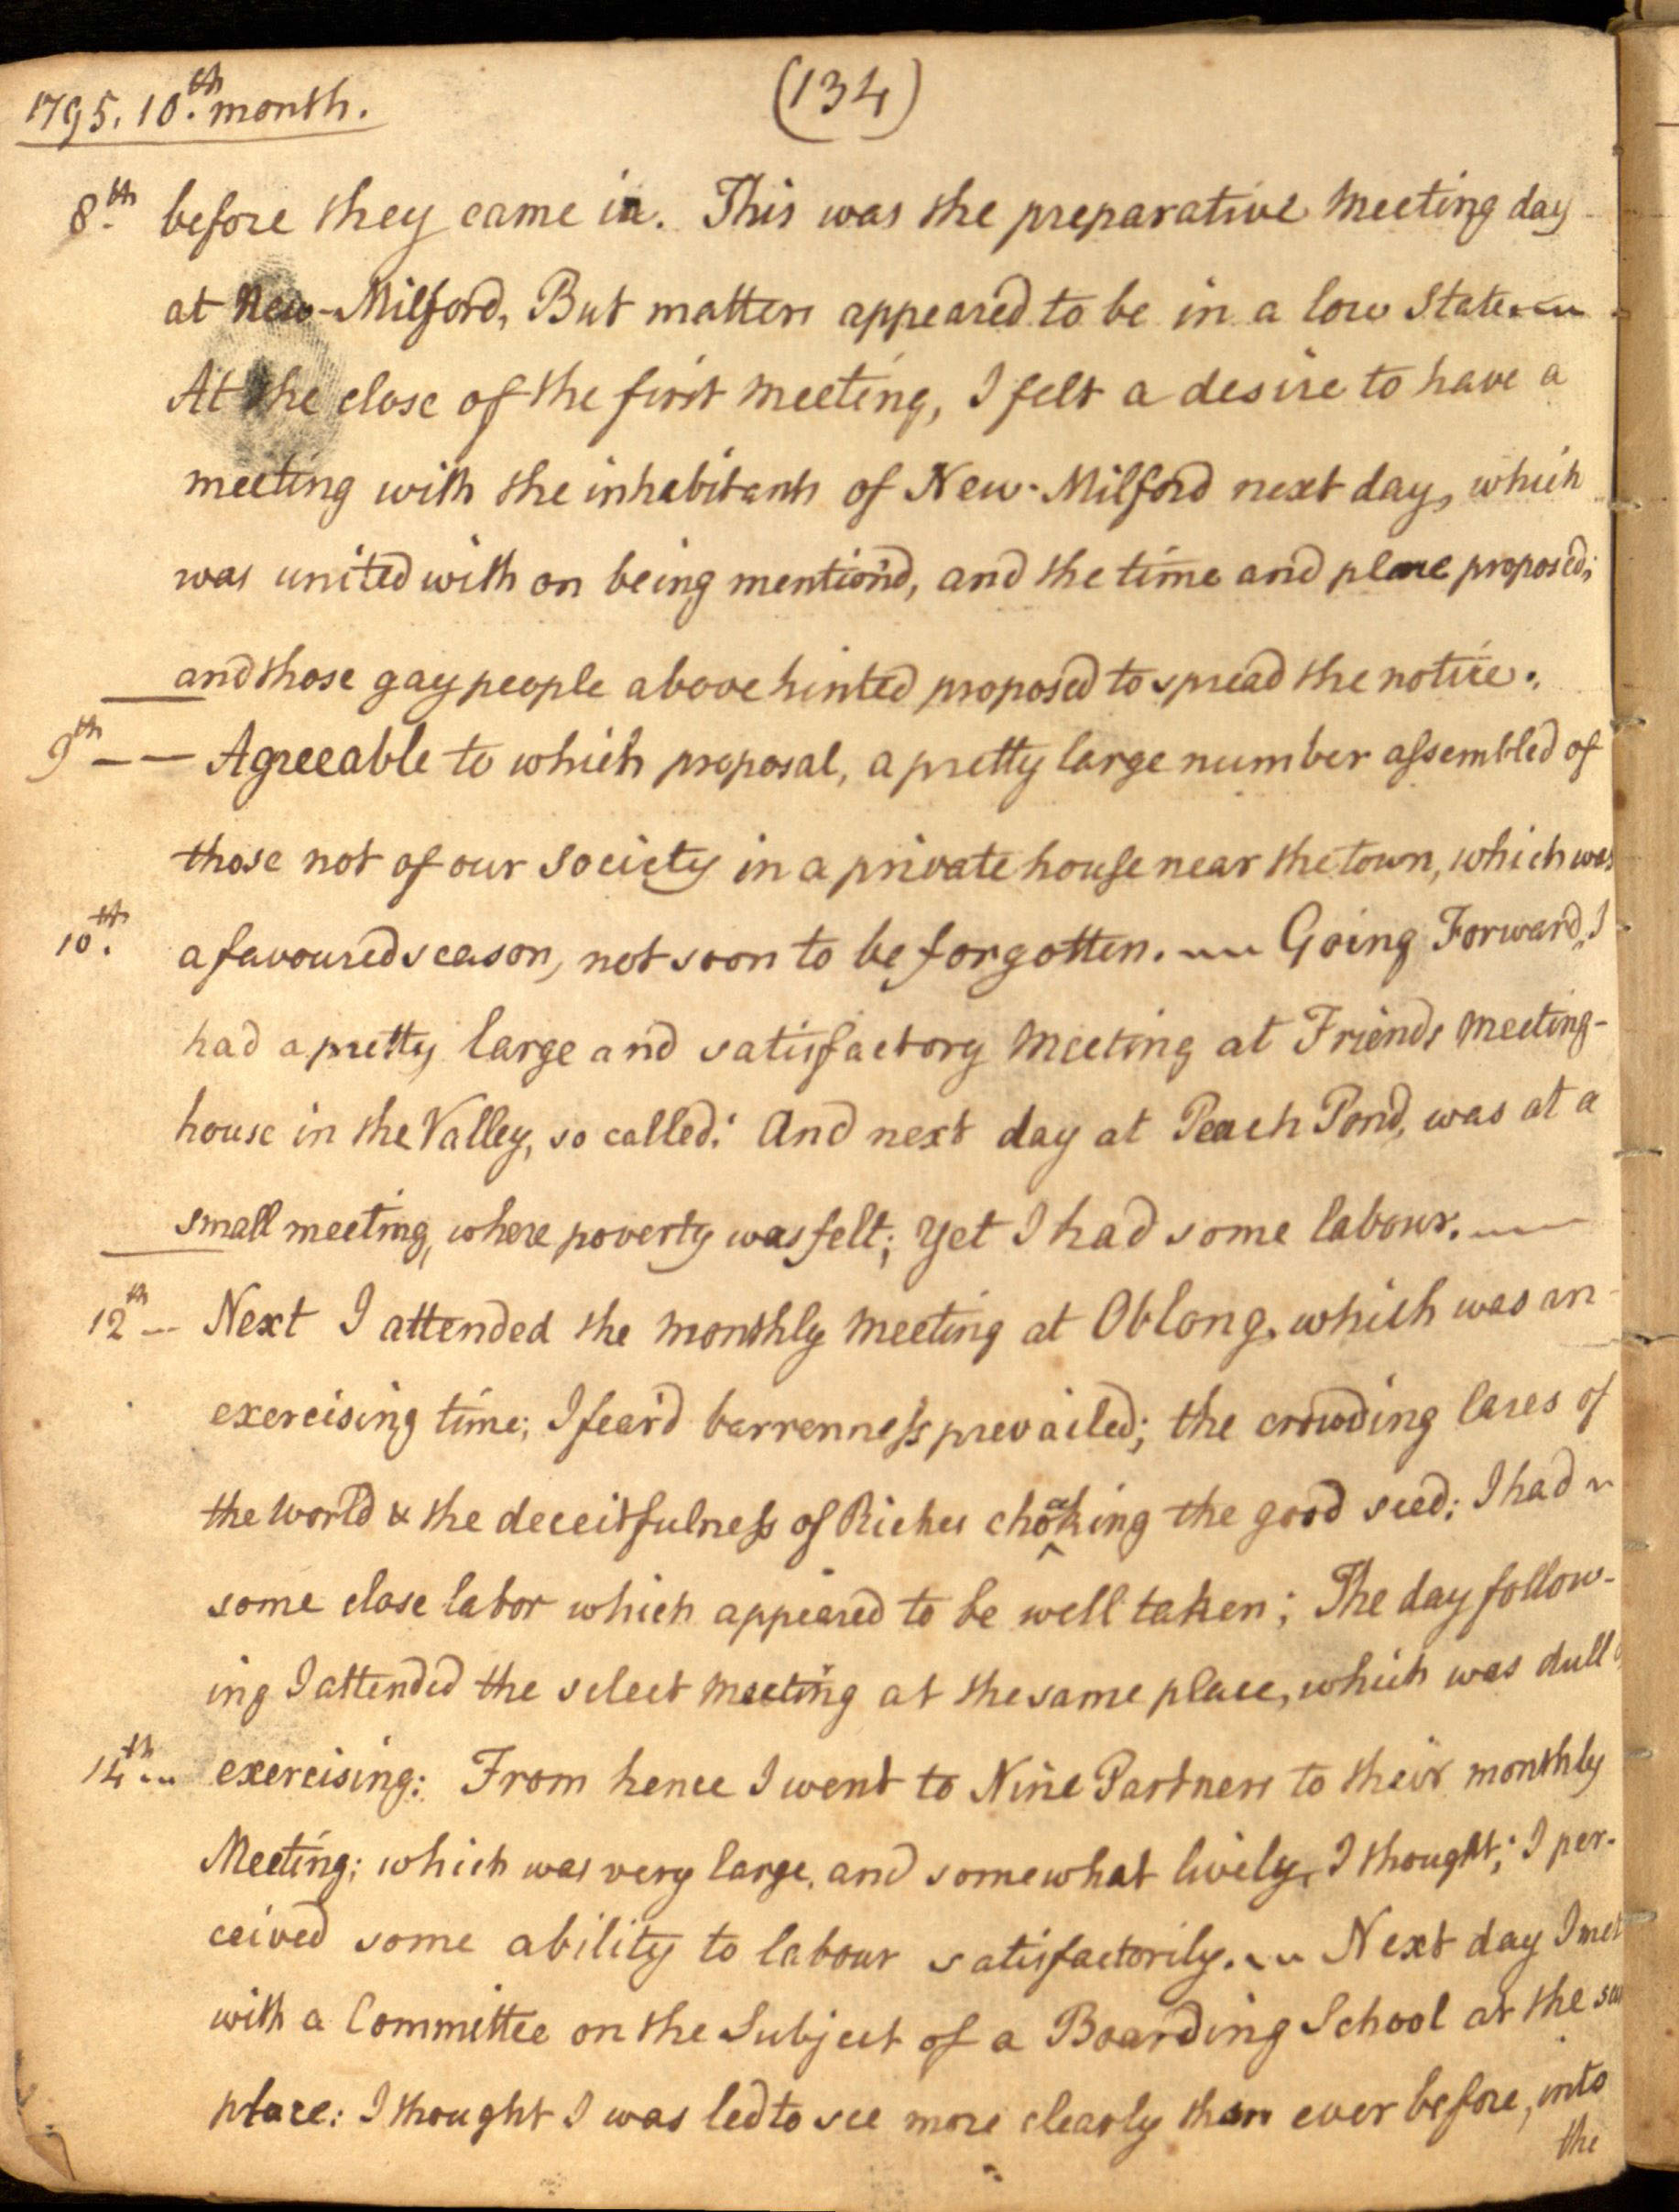 1795. 10.th month.
(134)
8.th before they came in. This was the preparative meeting day
at New-Milford, But matters appeared to be in a low State.
At the close of the first meeting, I felt a desire to have a
meeting with the inhabitants of New-Milford next day, which
was united with on being mention'd, and the time and place proposed;
and those gay people above hinted proposed to spread the notice.
9th — Agreeable to which proposal, a pretty large number assembled of
those not of our Society in a private house near the town, which was
10.th a favoured season, not soon to be forgotten. Going Forward, I
had a pretty large and satisfactory Meeting at Friends meeting-
house in the Valley, so called: And next day at Peach Pond, was at a
small meeting, where poverty was felt; yet I had some labour.
12th Next I attended the monthly meeting at Oblong, which was an
exercising time; I fear'd barrenness prevailed; the crowding cares of
the World & the deceitfulness of Riches choaking the good seed: I had
some close labor which appeared to be well taken; The day follow-
ing I attended the select meeting at the same place, which was dull &
14th exercising: From hence I went to Nine Partners to their monthly
Meeting; which was very large, and somewhat lively, I thought; I per-
ceived some ability to labour satisfactorily. Next day I met
with a Committee on the Subject of a Boarding School at the
place: I thought I was led to see more clearly than ever before, into
the